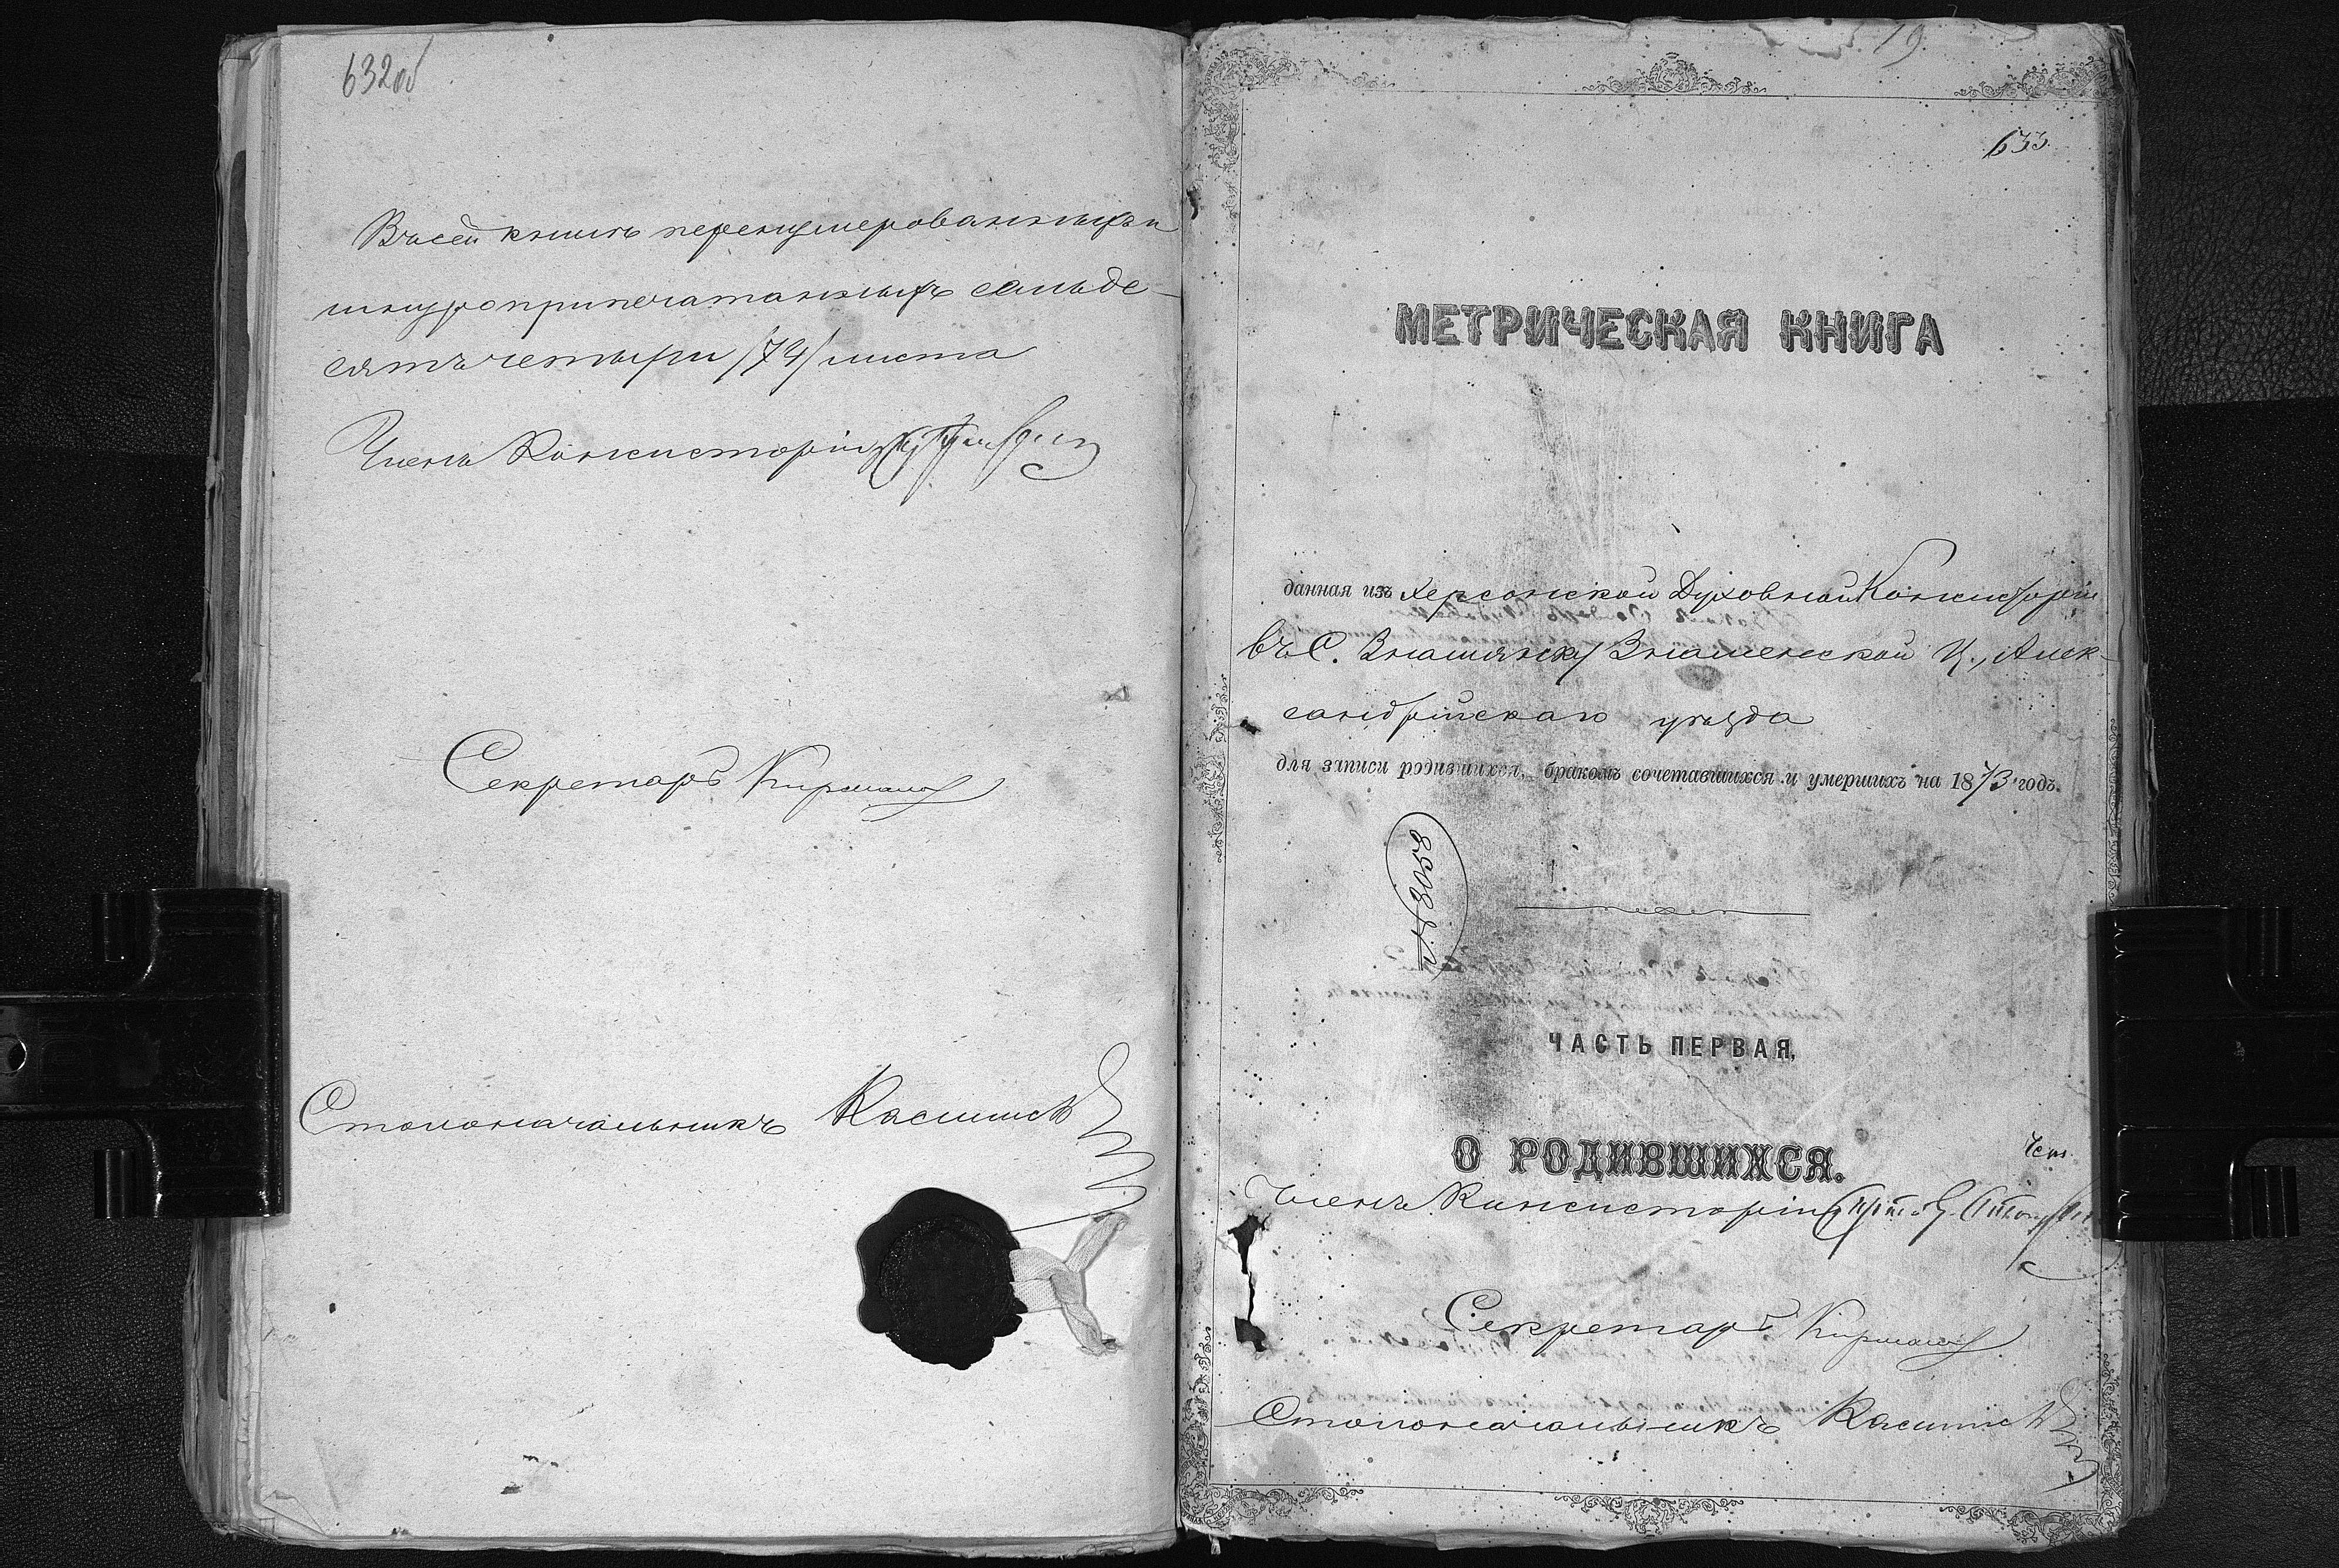 632об
Въ сей книгѣ перенумерованныхъ и
шнуроприпечатанныхъ семьде-
сятъ четыри /74/ листа
Членъ Консисторіи
Секретарь
Столоначальникъ
19
633.
МЕТРИЧЕСКАЯ КНИГА
данная изъ Херсонской Духовной Консисторіи
въ С. Знамянку Знаменской Ц., Алек-
сандрійскаго уѣзда
для записи родившихся, бракомъ сочетавшихся и умершихъ на 1873 годъ.
№ 3058
ЧАСТЬ ПЕРВАЯ,
О РОДИВШИХСЯ.
Членъ Консисторіи
Секретарь
Столоначальникъ